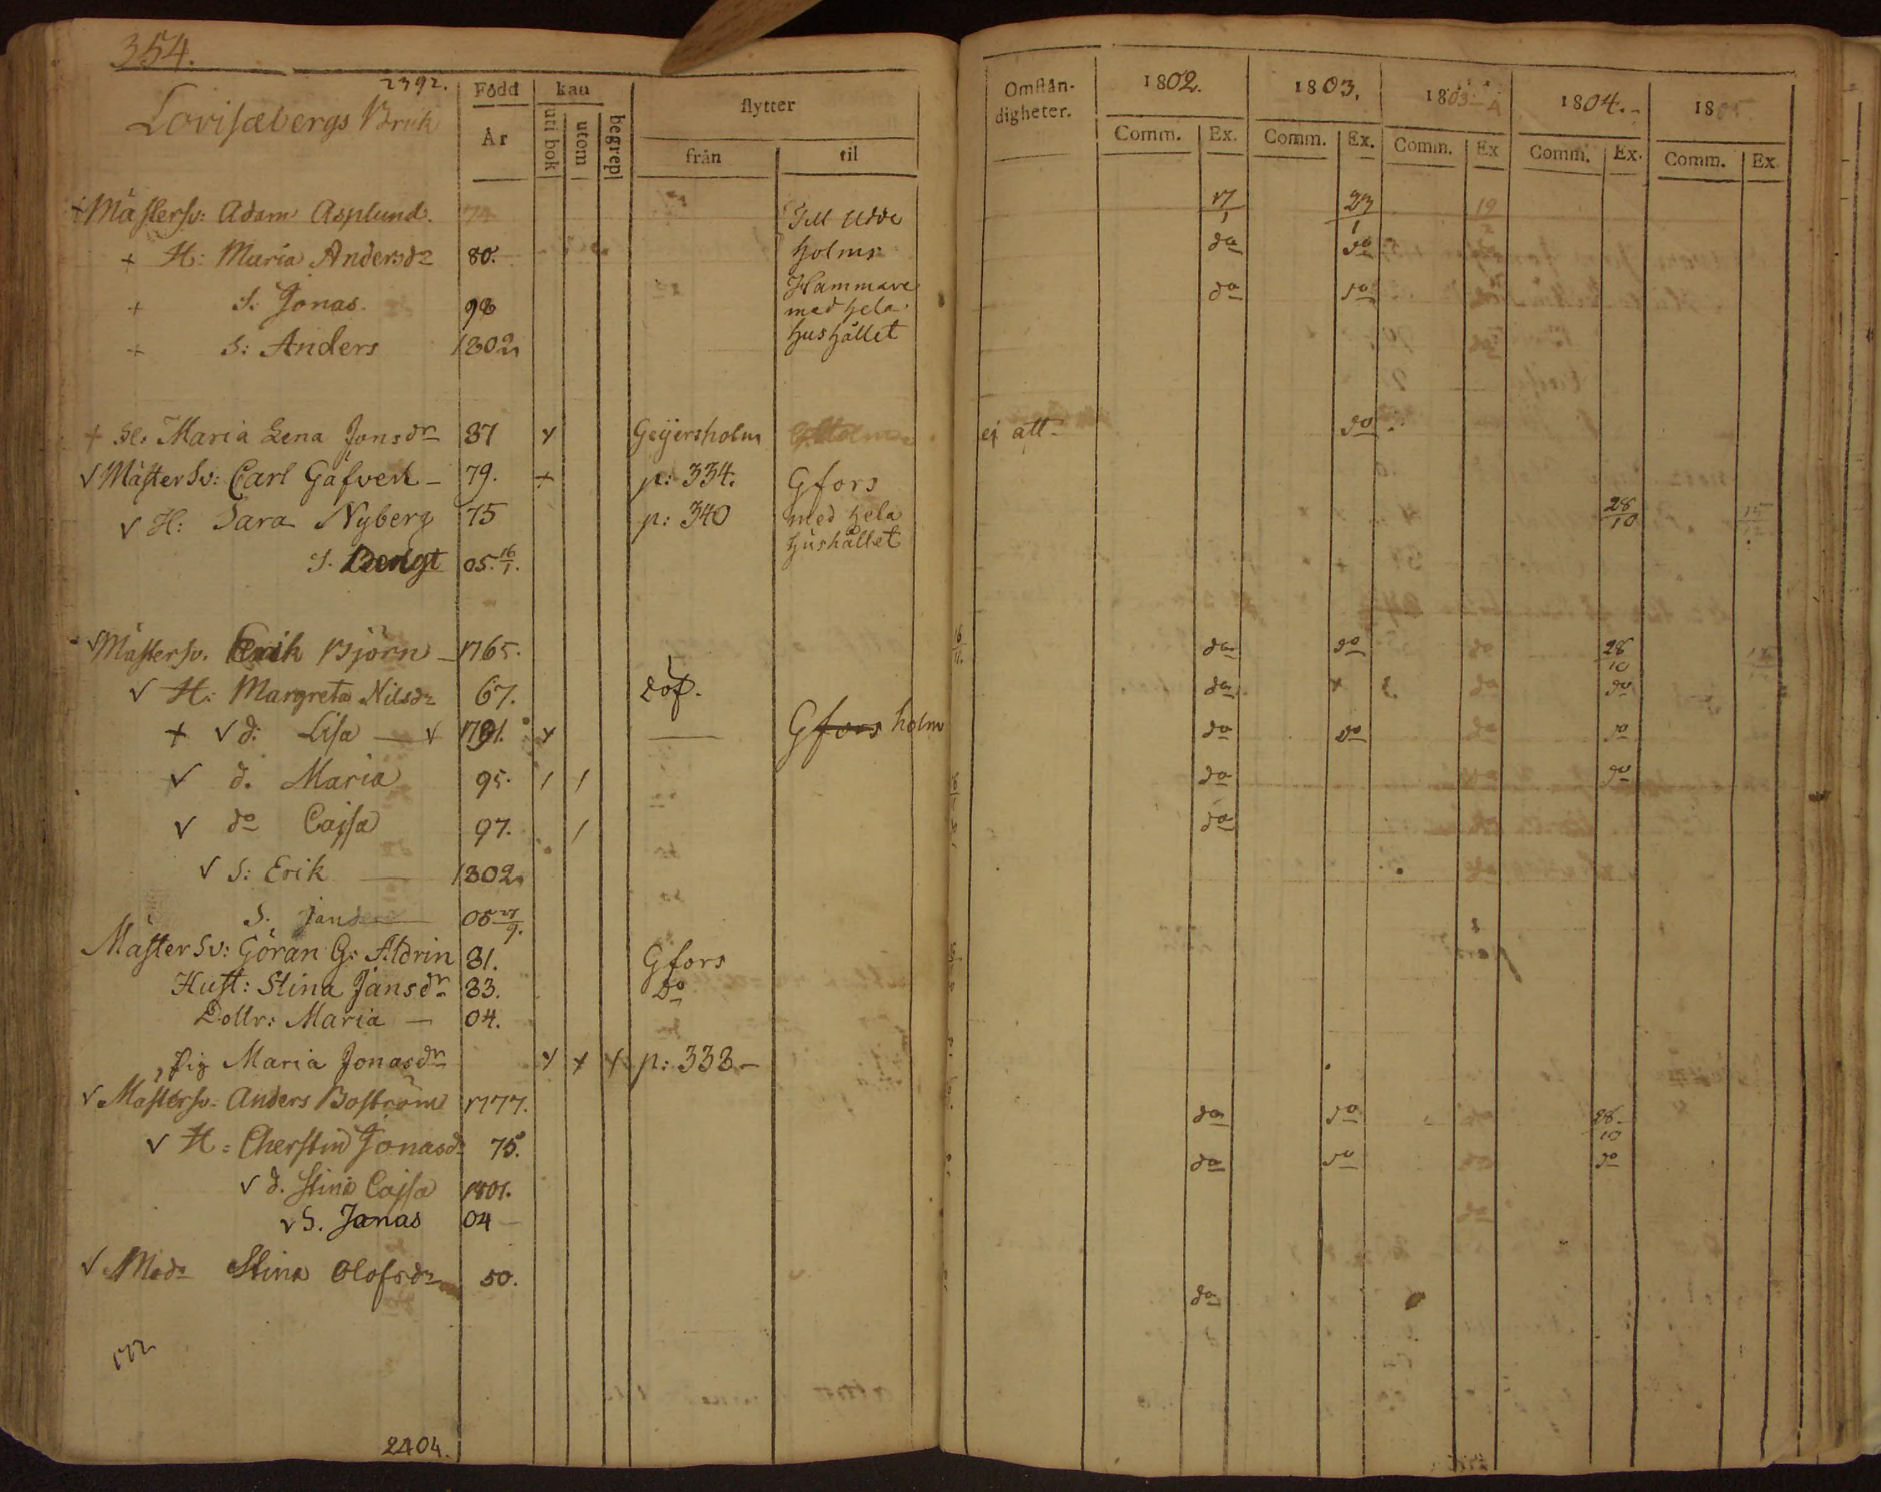 354.
2392.
Lovisæbergs Bruk
Född
År
kan
uti bok
utom
begrepl
flytter
från
til
Omstän-
digheter.
1802.
Comm. Ex.
1803.
Comm. Ex.
1803
Comm. Ex
1804.
Comm. Ex.
18
Comm. Ex
+ Mästersv: Adam Asplund. 74 Till Udde 17/1 23/1 19/2
+ H: Maria Andersdr 80. holms do do
+ S: Jonas. 98 Hammare do do
med hela
+ S: Anders 1802 hushållet
+ Maria Lena Jonsdr 87 x Geijersholm ej att. do
√ Mästersv: Carl Gäfvert 79. + p: 334. Gfors
√ H: Sara Nyberg 75 p: 340 med hela 28/10
hushållet
S. Bengt 05. 16/1.
√ Mästersv. Erik Björn 1765. do do 28/10
√ H: Margreta Nilsdr 67. döf. do x do
+ √ d: Lisa √ 1791. x Gfors holm do do do
√ d. Maria 95. / / do do
√ do Cajsa 97. / do
√ S: Erik 1802.
S. Jan 05 27/9.
Mästersv: Göran G: Aldrin 81. Gfors
Hust: Stina Jansdr 83. Do
Dottr: Maria 04.
pig Maria Jonasdr x x x p: 338
√ Mästersv. Anders Boström 1777. do do 28/10
√ H: Cherstin Jonasdr 75. do do do
√ d. Stina Cajsa 1801.
√ S. Jonas 04
√ Modr Stina Olofsdr 50. do
2404.